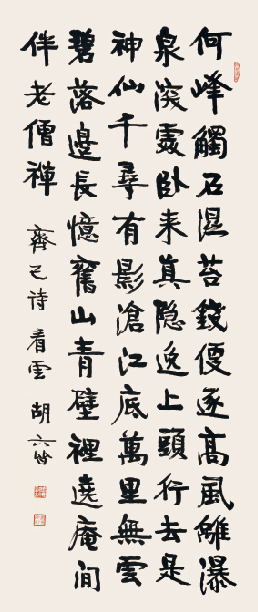 何峰觸石湿苔錢便逐髙風離瀑
泉深處卧来真隐逸上頭行去是
神仙千尋有影滄江底萬里無雲
碧落邊長憶舊山青壁裡遶庵间
伴老僧禅 齊己詩 看雲 胡六皆